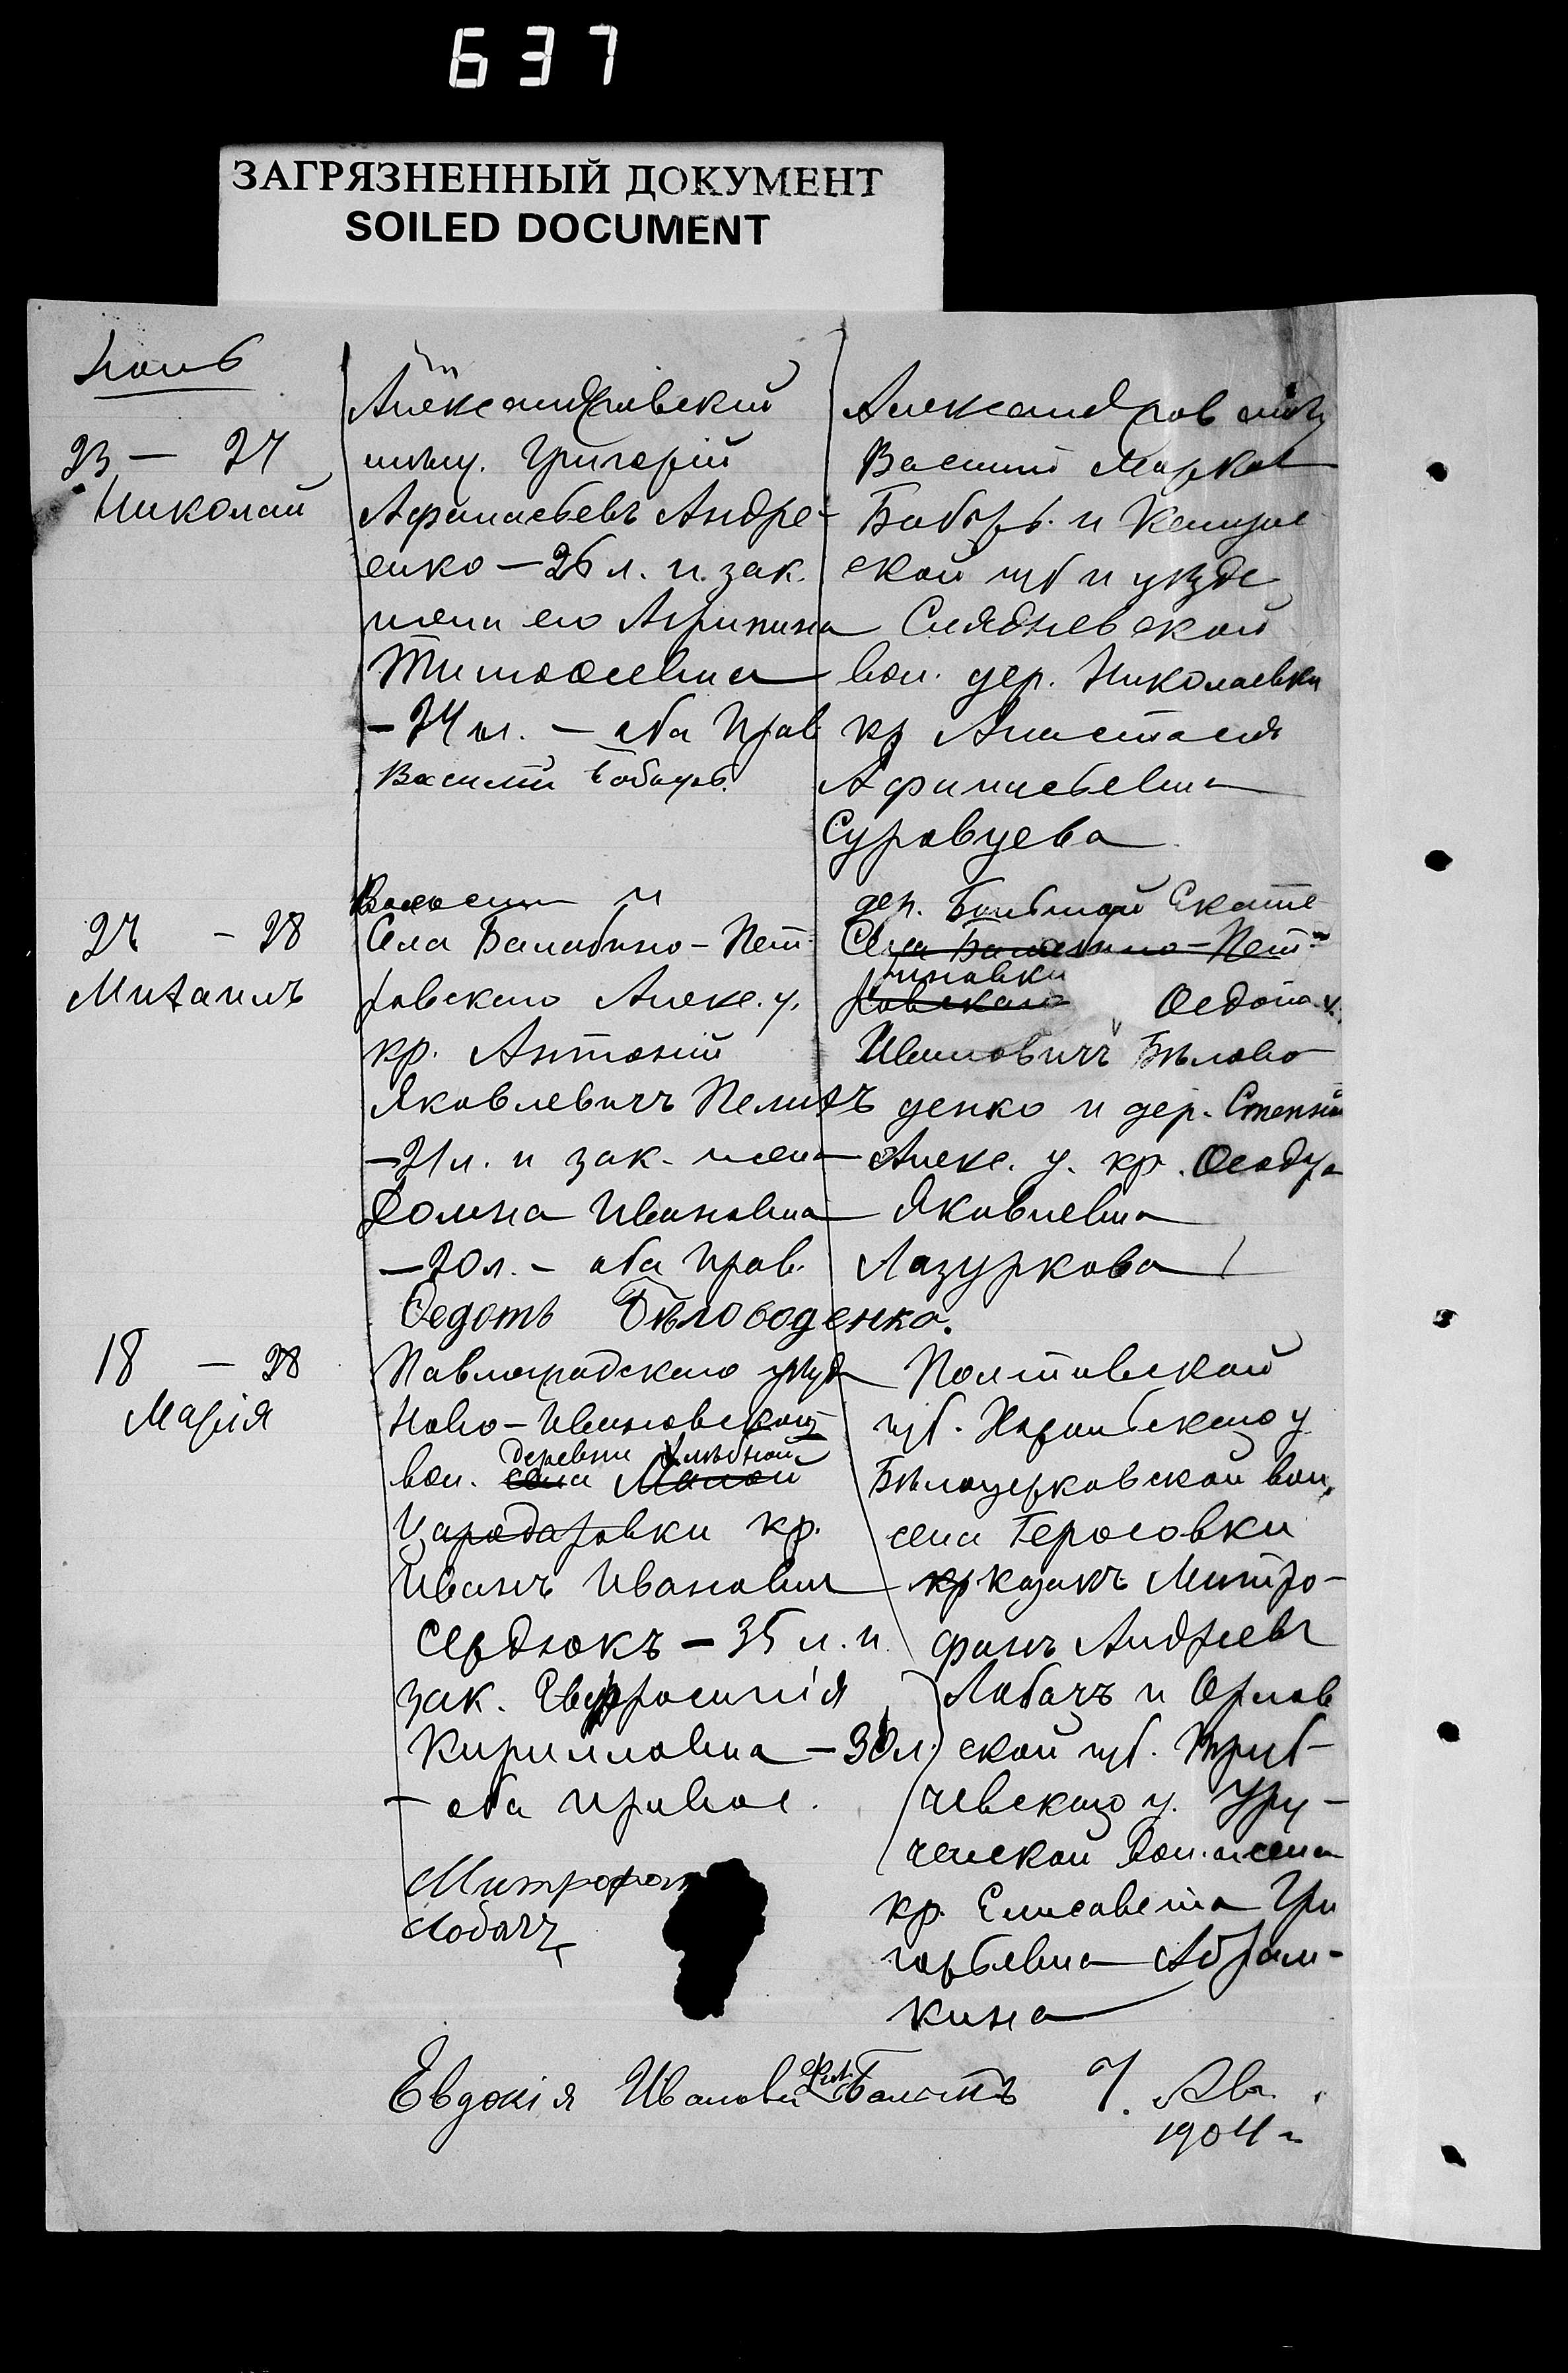 637
ЗАГРЯЗНЕННЫЙ ДОКУМЕНТ
SOILED DOCUMENT
23 — 24
Николай
Александровский
Григорій
Афанасьевъ Андре-
енко — 26 л. и зак.
жена его Агрипина
Тимофеевна
— 24 л. — оба Прав
Василий Бобырь
Александров
Василий Марков
Бобырь и
ской губ и уезда
ской
вол. дер. Николаевки
кр Анастасия
Афанасьевна
Суровцева
27 — 28
Михаилъ
Села Балабино-Пет-
ровскаго Алекс. у.
кр. Антоній
Яковлевичъ Пелихъ
— 21 л. и зак. жена
Домна Ивановна
— 20 л. — оба Прав.
Федотъ Бѣловоденко.
дер. Большой Екате
Села Балабино-Пет-
риновки
ровскаго Федотъ
Ивановичъ Бѣлово
денко и дер. Степной
Алекс. у. кр. Феодора
Яковлевна
Лазуркова
18 — 28
Марія
Павлоградскаго уезда
Ново-Ивановской
деревни Хлѣбной
вол. села Малой
Цародаровки кр.
Иванъ Иванович
Сердюкъ — 35 л. и
зак. Евфросинія
Кирилловна — 30 л.
— оба правос.
Митрофан
Лобачъ
Полтавской
губ. Хорольскаго у
Бѣлоцерковской вол.
села Геросовки
кр казакъ Митро-
фанъ Андреевъ
Лобачъ и Орлов
ской губ. Труб-
чевскаго у. Уру-
ченской вол. села
кр. Елисавета Гри
горьевна Абрам-
кина
Евдокія Иванов
1904 г